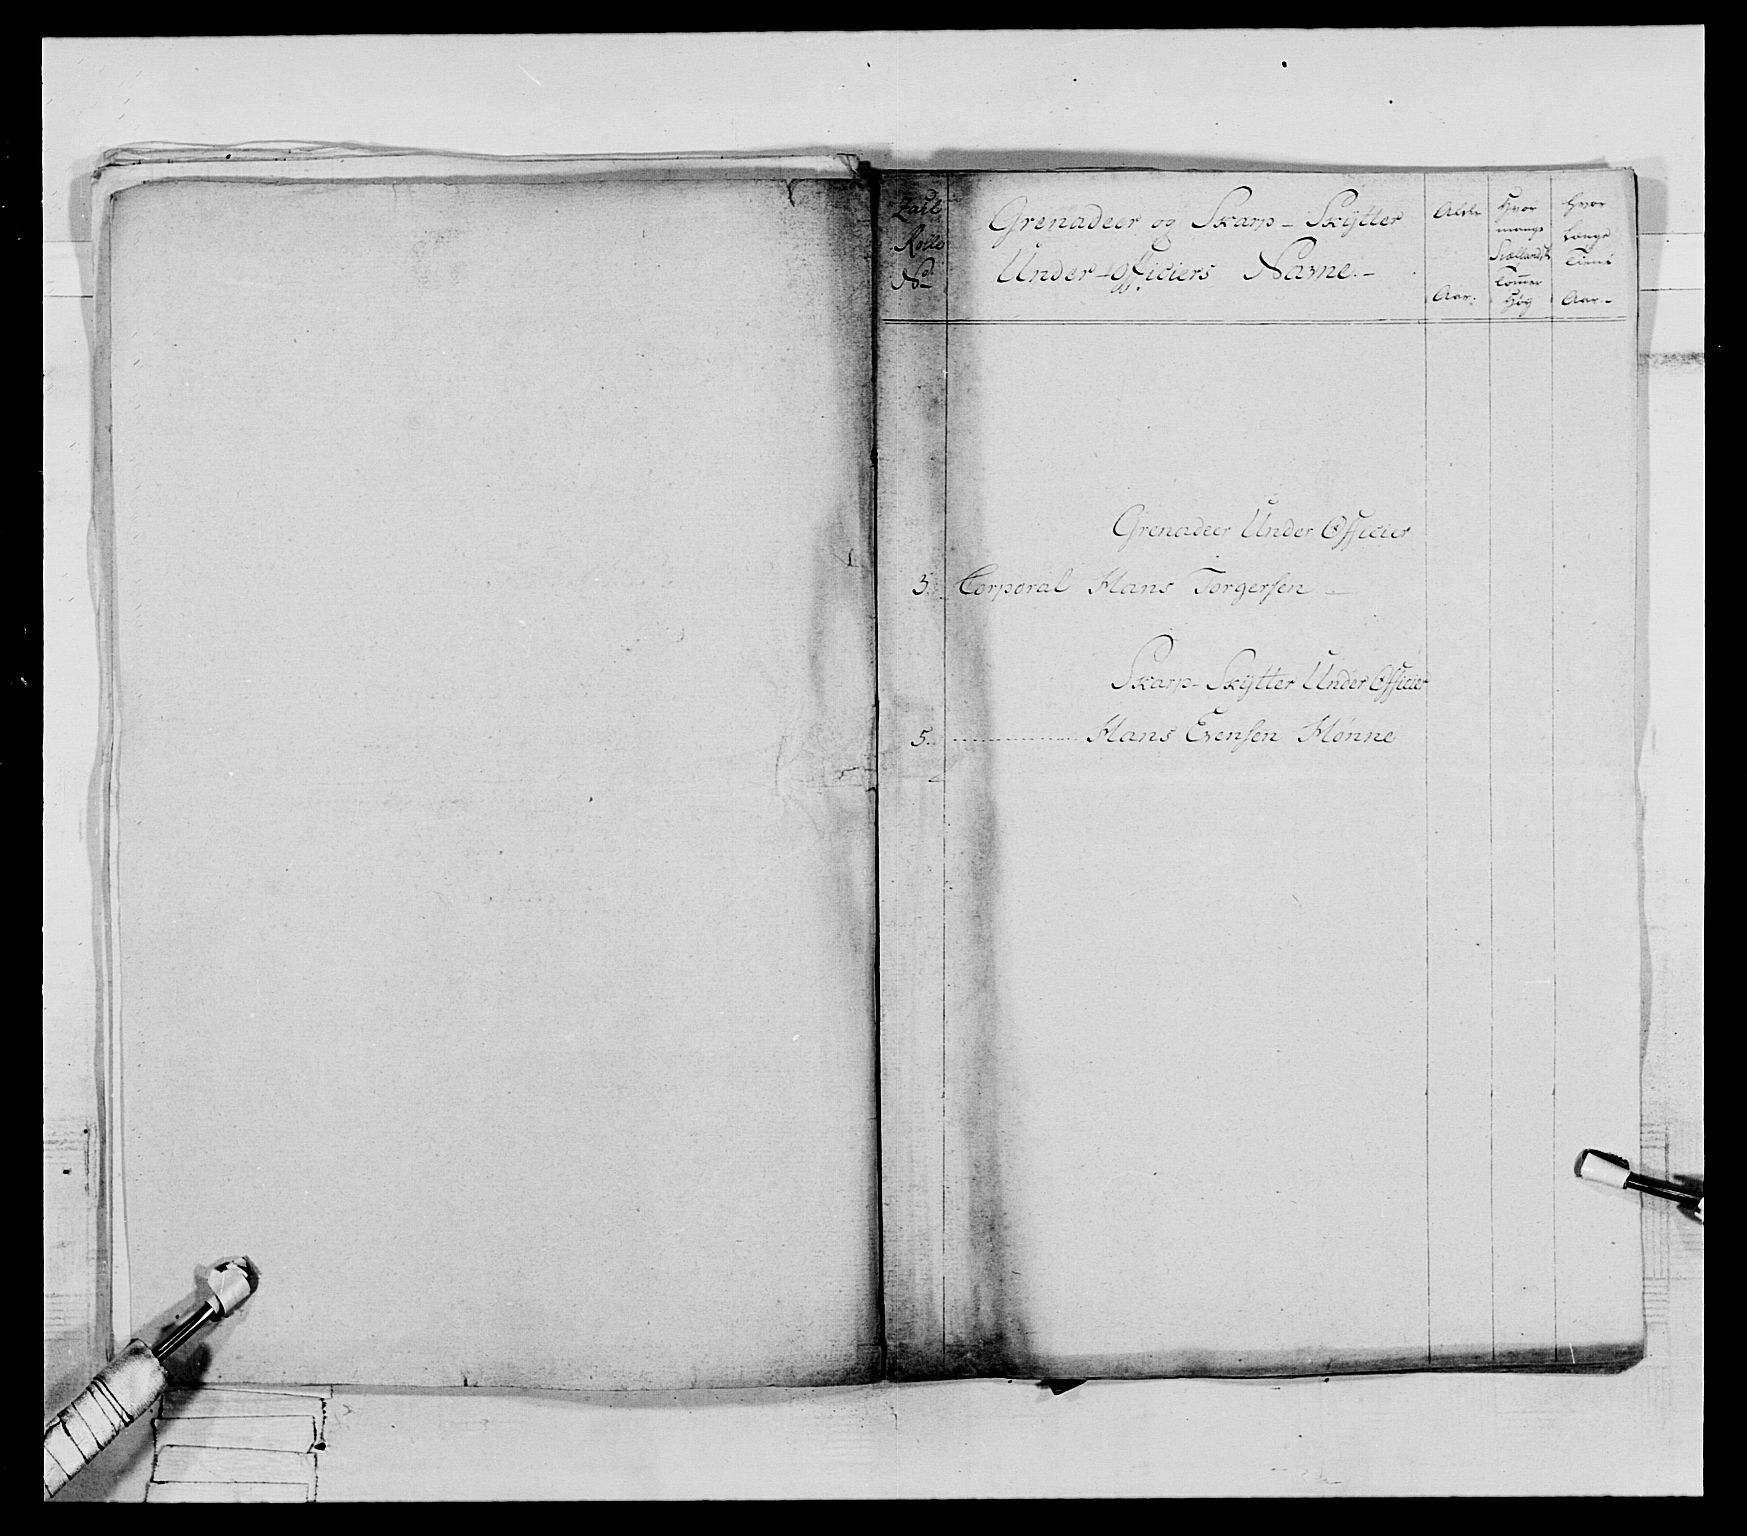 Zahl
Rolle
No
Grenadeer og Skarp-Skÿtter
Under-officiers Navne.-
Alder
Aar.
Hvor
mange
Siællandsk
Tom̅er
Høy
Hvor
længe
Tient
Aar.-
Grenadeer Under Officier
3. Corporal Hans Torgersen
Skarp-Skÿtter Under Officier
5. Hans Evensen Hønne